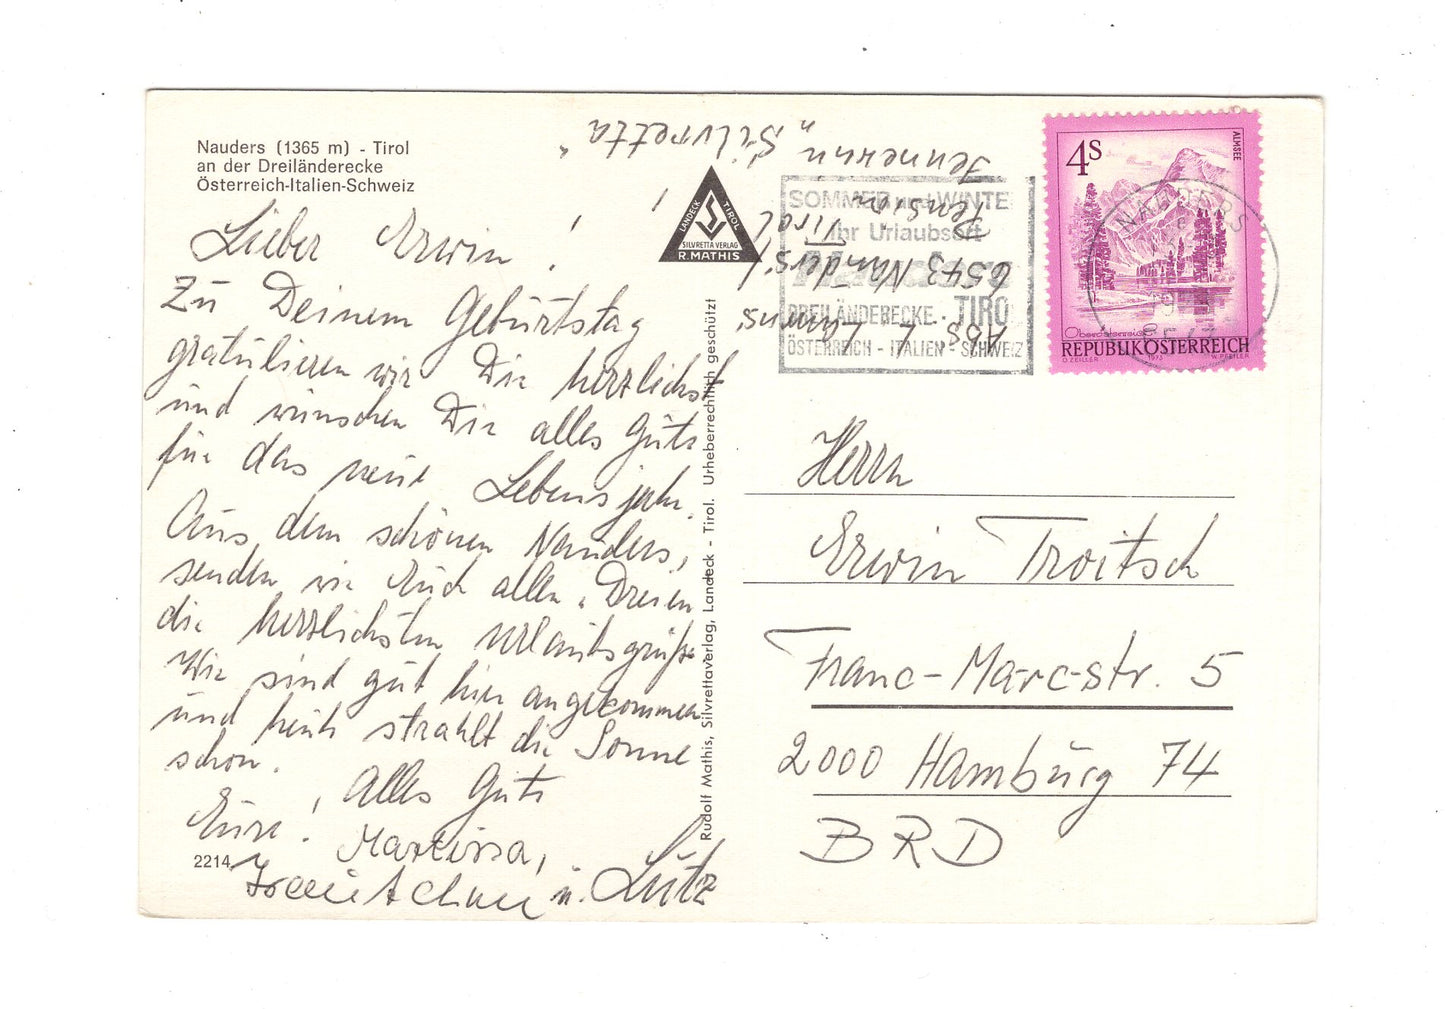 Nauders (1365 m) - Tirol
an der Dreiländerecke
Österreich-Italien-Schweiz
Lieber Erwin!
Zu Deinem Geburtstag
gratulieren wir Dir herzlichst
und wünschen Dir alles Gute
für das neue Lebensjahr.
Aus dem schönen Nauders,
senden wir Euch allen Dreien
die herzlichsten Urlaubsgrüße
Wir sind gut hier angekommen
und heute strahlt die Sonne
schon. Alles Gute
Eure!
u. Lutz
2214
LANDECK TIROL
SILVRETTA VERLAG
R. MATHIS
Rudolf Mathis, Silvrettaverlag, Landeck - Tirol. Urheberrechtlich geschützt
Abs. L.
6543 Nauders / Tirol
Pension
„Silvretta"
SOMMER und WINTE
Ihr Urlaubsort
Nauders
DREILÄNDERECKE - TIRO
ÖSTERREICH - ITALIEN - SCHWEIZ
4S
ALMSEE
Oberösterreich
REPUBLIK ÖSTERREICH
O. ZEILLER 1973 W. PFEILER
NAUDERS
Herrn
Erwin Troitsch
Franc-Marc-str. 5
2000 Hamburg 74
BRD